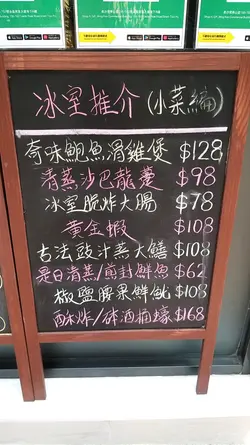 冰室推介(小菜編)
奇味鮑魚滑雞煲 $128
清蒸沙巴龍躉 $98
冰室脆炸大腸 $78
黃金蝦 $108
古法豉汁蒸大鱔 $108
是日清蒸/煎封鮮魚 $62
椒鹽腰果鮮魷 $108
酥炸/砵酒桶蠔 $168